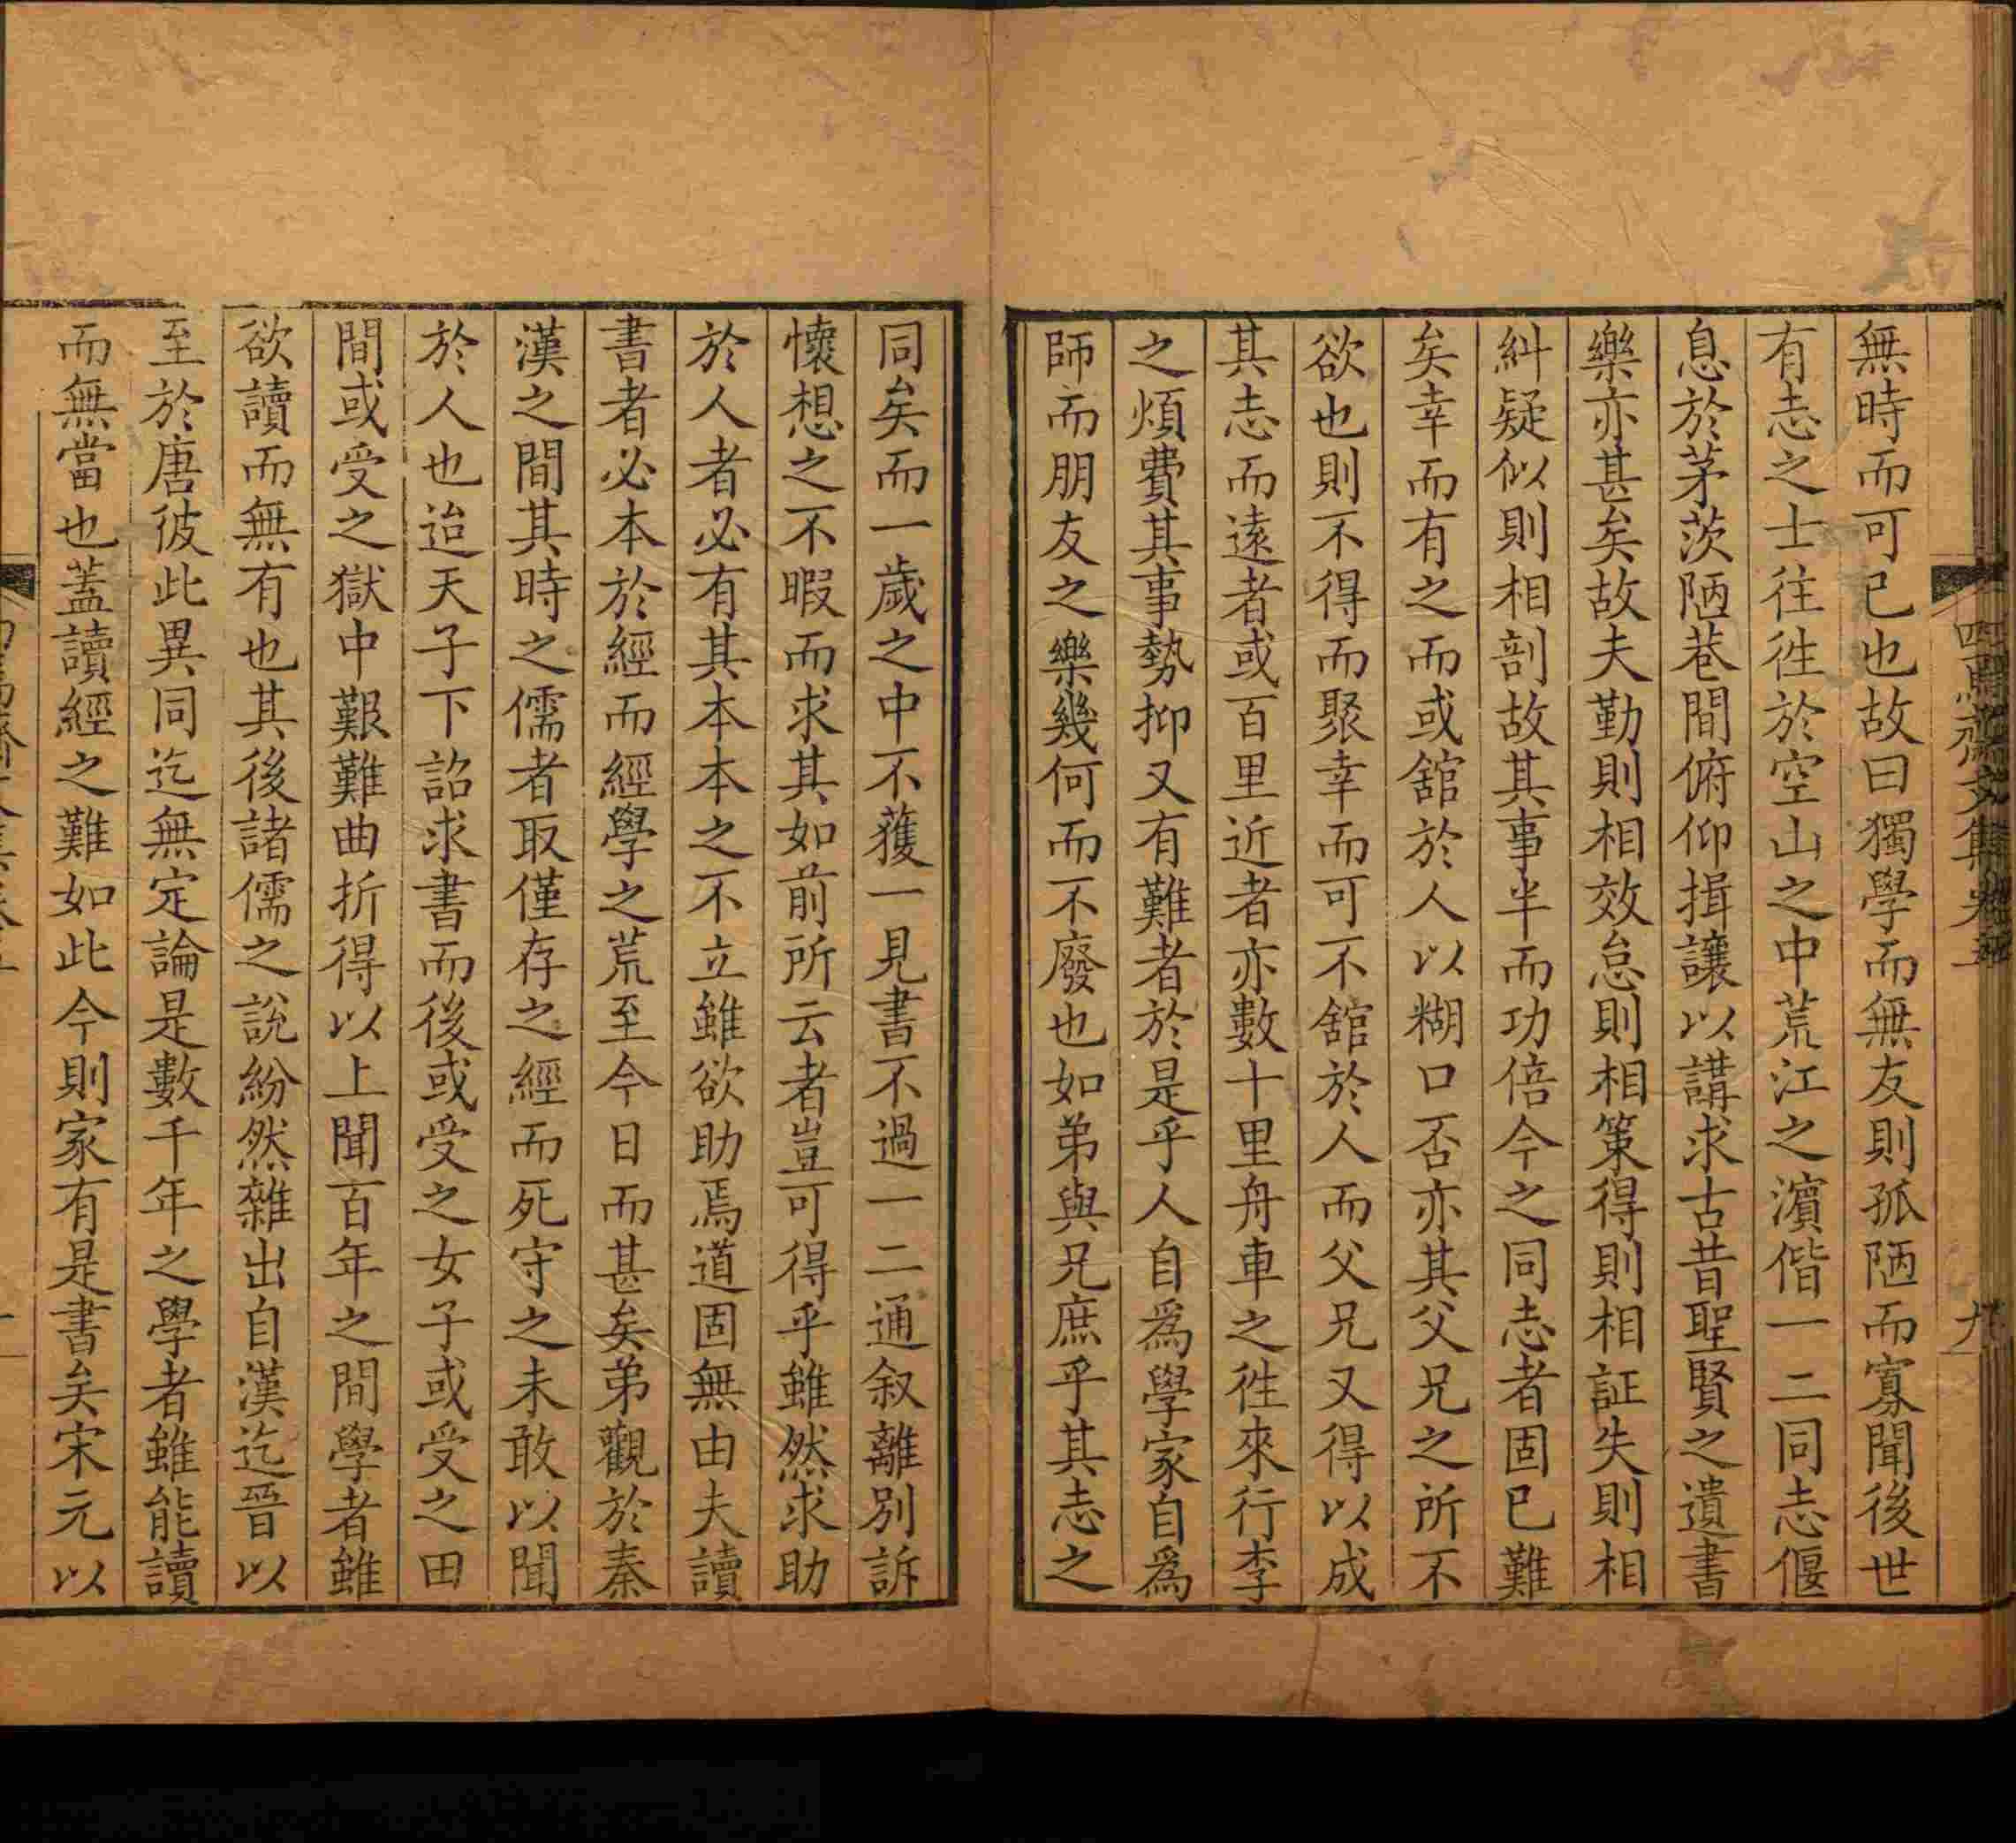 無時而可已也故曰獨學而無友則孤陋而寡聞後世
有志之士往徃於空山之中荒江之濵偕一二同志偃
息於茅茨陋巷間俯仰揖讓以講求古昔聖賢之遺書
樂亦甚矣故夫勤則相效怠則相策得則相証失則相
糾疑似則相剖故其事半而功倍今之同志者固已難
矣幸而有之而或舘於人以糊口否亦其父兄之所不
欲也則不得而聚幸而可不舘於人而父兄又得以成
其志而逺者或百里近者亦數十里舟車之徃來行李
之煩費其事勢抑又有難者於是乎人自為學家自為
師而朋友之樂幾何而不廢也如弟與兄庶乎其志之
同矣而一歲之中不獲一見書不過一二通叙離別訴
懷想之不暇而求其如前所云者豈可得乎雖然求助
於人者必有其本本之不立雖欲助焉道固無由夫讀
書者必本於經而經學之荒至今日而甚矣弟觀於秦
漢之間其時之儒者取僅存之經而死守之未敢以聞
於人也迨天子下詔求書而後或受之女子或受之田
間或受之獄中艱難曲折得以上聞百年之間學者雖
欲讀而無有也其後諸儒之說紛然雜出自漢迄晉以
至於唐彼此異同迄無定論是數千年之學者雖能讀
而無當也蓋讀經之難如此今則家有是書矣宋元以